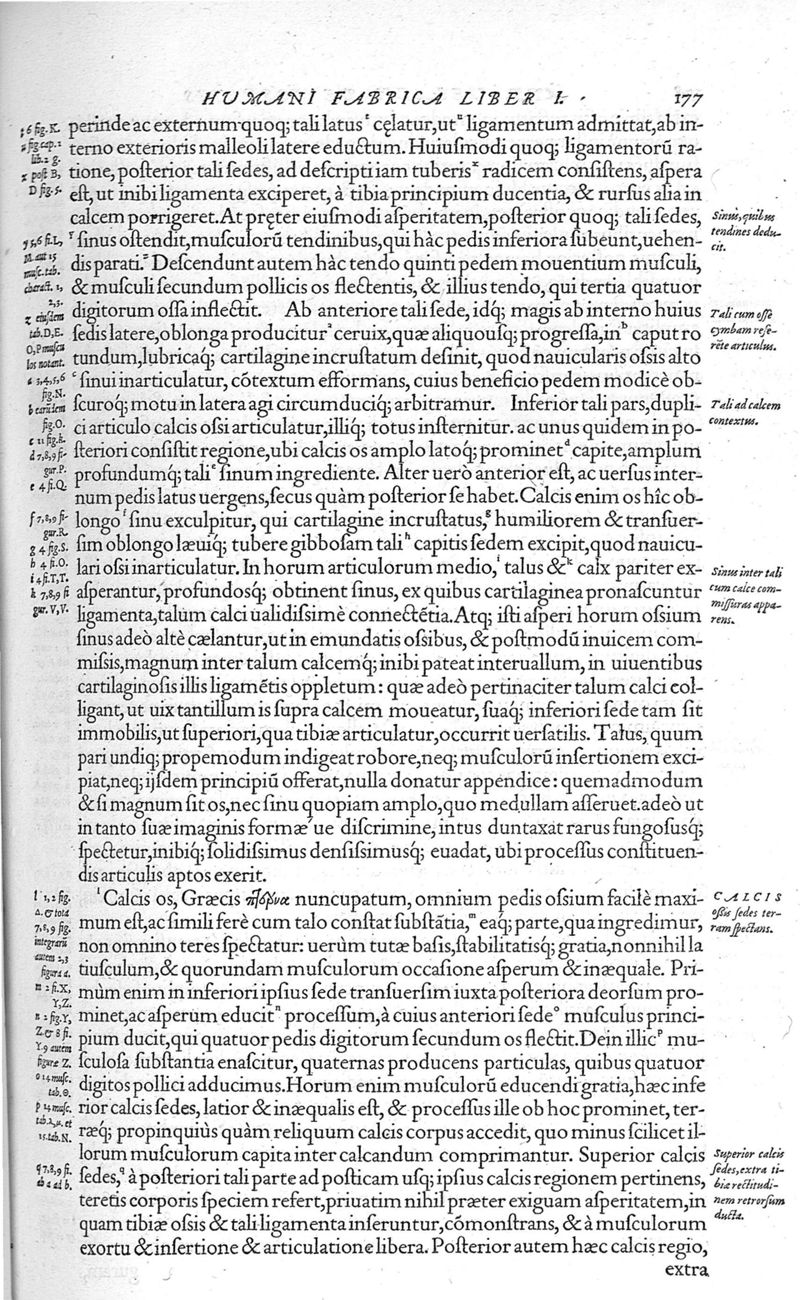 HUMANI FABRICA LIBER I. 177
perinde ac externum quoq; tali latus ˢ cęlatur, ut ᵘ ligamentum admittat, ab in-
terno exterioris malleoli latere eductum. Huiusmodi quoq; ligamentorū ra-
tione, posterior tali sedes, ad descripti iam tuberis ˣ radicem consistens, aspera
est, ut inibi ligamenta exciperet, à tibia principium ducentia, & rursus alia in
calcem porrigeret. At pręter eiusmodi asperitatem, posterior quoq; tali sedes,
ʸ sinus ostendit, musculorū tendinibus, qui hàc pedis inferiora subeunt, uehen-
dis parati. ᶻ Descendunt autem hàc tendo quinti pedem mouentium musculi,
& musculi secundum pollicis os flectentis, & illius tendo, qui tertia quatuor
digitorum ossa inflectit. Ab anteriore tali sede, idq́; magis ab interno huius
sedis latere, oblonga producitur ᵃ ceruix, quæ aliquousq; progressa, in ᵇ caput ro
tundum, lubricaq́; cartilagine incrustatum desinit, quod nauicularis ossis alto
ᶜ sinui inarticulatur, cōtextum efformans, cuius beneficio pedem modicè ob-
scuroq́; motu in latera agi circumduciq́; arbitramur. Inferior tali pars, dupli-
ci articulo calcis ossi articulatur, illiq́; totus insternitur. ac unus quidem in po-
steriori consistit regione, ubi calcis os amplo latoq́; prominet ᵈ capite, amplum
profundumq́; tali ᵉ sinum ingrediente. Alter uerò anterior est, ac uersus inter-
num pedis latus uergens, secus quàm posterior se habet. Calcis enim os hîc ob-
longo ᶠ sinu exculpitur, qui cartilagine incrustatus, ᵍ humiliorem & transuer-
sim oblongo læuiq́; tubere gibbosam tali ʰ capitis sedem excipit, quod nauicu-
lari ossi inarticulatur. In horum articulorum medio, ⁱ talus & ᵏ calx pariter ex-
asperantur, profundosq́; obtinent sinus, ex quibus cartilaginea pronascuntur
ligamenta, talum calci ualidissimè connectētia. Atq; isti asperi horum ossium
sinus adeò altè cælantur, ut in emundatis ossibus, & postmodū inuicem com-
missis, magnum inter talum calcemq́; inibi pateat interuallum, in uiuentibus
cartilaginosis illis ligamētis oppletum: quæ adeò pertinaciter talum calci col-
ligant, ut uix tantillum is supra calcem moueatur, suaq́; inferiori sede tam sit
immobilis, ut superiori, qua tibiæ articulatur, occurrit uersatilis. Talus, quum
pari undiq; propemodum indigeat robore, neq; musculorū insertionem exci-
piat, neq; ijsdem principiū offerat, nulla donatur appendice: quemadmodum
& si magnum sit os, nec sinu quopiam amplo, quo medullam asseruet. adeò ut
in tanto suæ imaginis formæ´ue discrimine, intus duntaxat rarus fungosusq́;
spectetur, inibiq́; solidissimus densissimusq́; euadat, ubi processus constituen-
dis articulis aptos exerit.
ˡ Calcis os, Græcis πτέρνα nuncupatum, omnium pedis ossium facilè maxi-
mum est, ac simili ferè cum talo constat substātia, ᵐ eaq́; parte, qua ingredimur,
non omnino teres spectatur: uerùm tutæ basis, stabilitatisq́; gratia, nonnihil la
tiusculum, & quorundam musculorum occasione asperum & inæquale. Pri-
mùm enim in inferiori ipsius sede transuersim iuxta posteriora deorsum pro-
minet, ac asperum educit ⁿ processum, à cuius anteriori sede ᵒ musculus princi-
pium ducit, qui quatuor pedis digitorum secundum os flectit. Dein illic ᵖ mu-
sculosa substantia enascitur, quaternas producens particulas, quibus quatuor
digitos pollici adducimus. Horum enim musculorū educendi gratia, hæc infe
rior calcis sedes, latior & inæqualis est, & processus ille ob hoc prominet, ter-
ræq́; propinquiùs quàm reliquum calcis corpus accedit, quo minus scilicet il-
lorum musculorum capita inter calcandum comprimantur. Superior calcis
sedes, ᑫ à posteriori tali parte ad posticam usq; ipsius calcis regionem pertinens,
teretis corporis speciem refert, priuatim nihil præter exiguam asperitatem, in
quam tibiæ ossis & tali ligamenta inseruntur, cōmonstrans, & à musculorum
exortu & insertione & articulatione libera. Posterior autem hæc calcis regio,
extra
Sinus, quibus
tendines dedu-
cit.
Tali cum osse
cymbam refe-
rēte articulus.
Tali ad calcem
contextus.
Sinus inter tali
cum calce com-
missuras appa-
rens.
CALCIS
ossis sedes ter-
ram spectans.
Superior calcis
sedes, extra ti-
biæ rectitudi-
nem retrorsum
ducta.